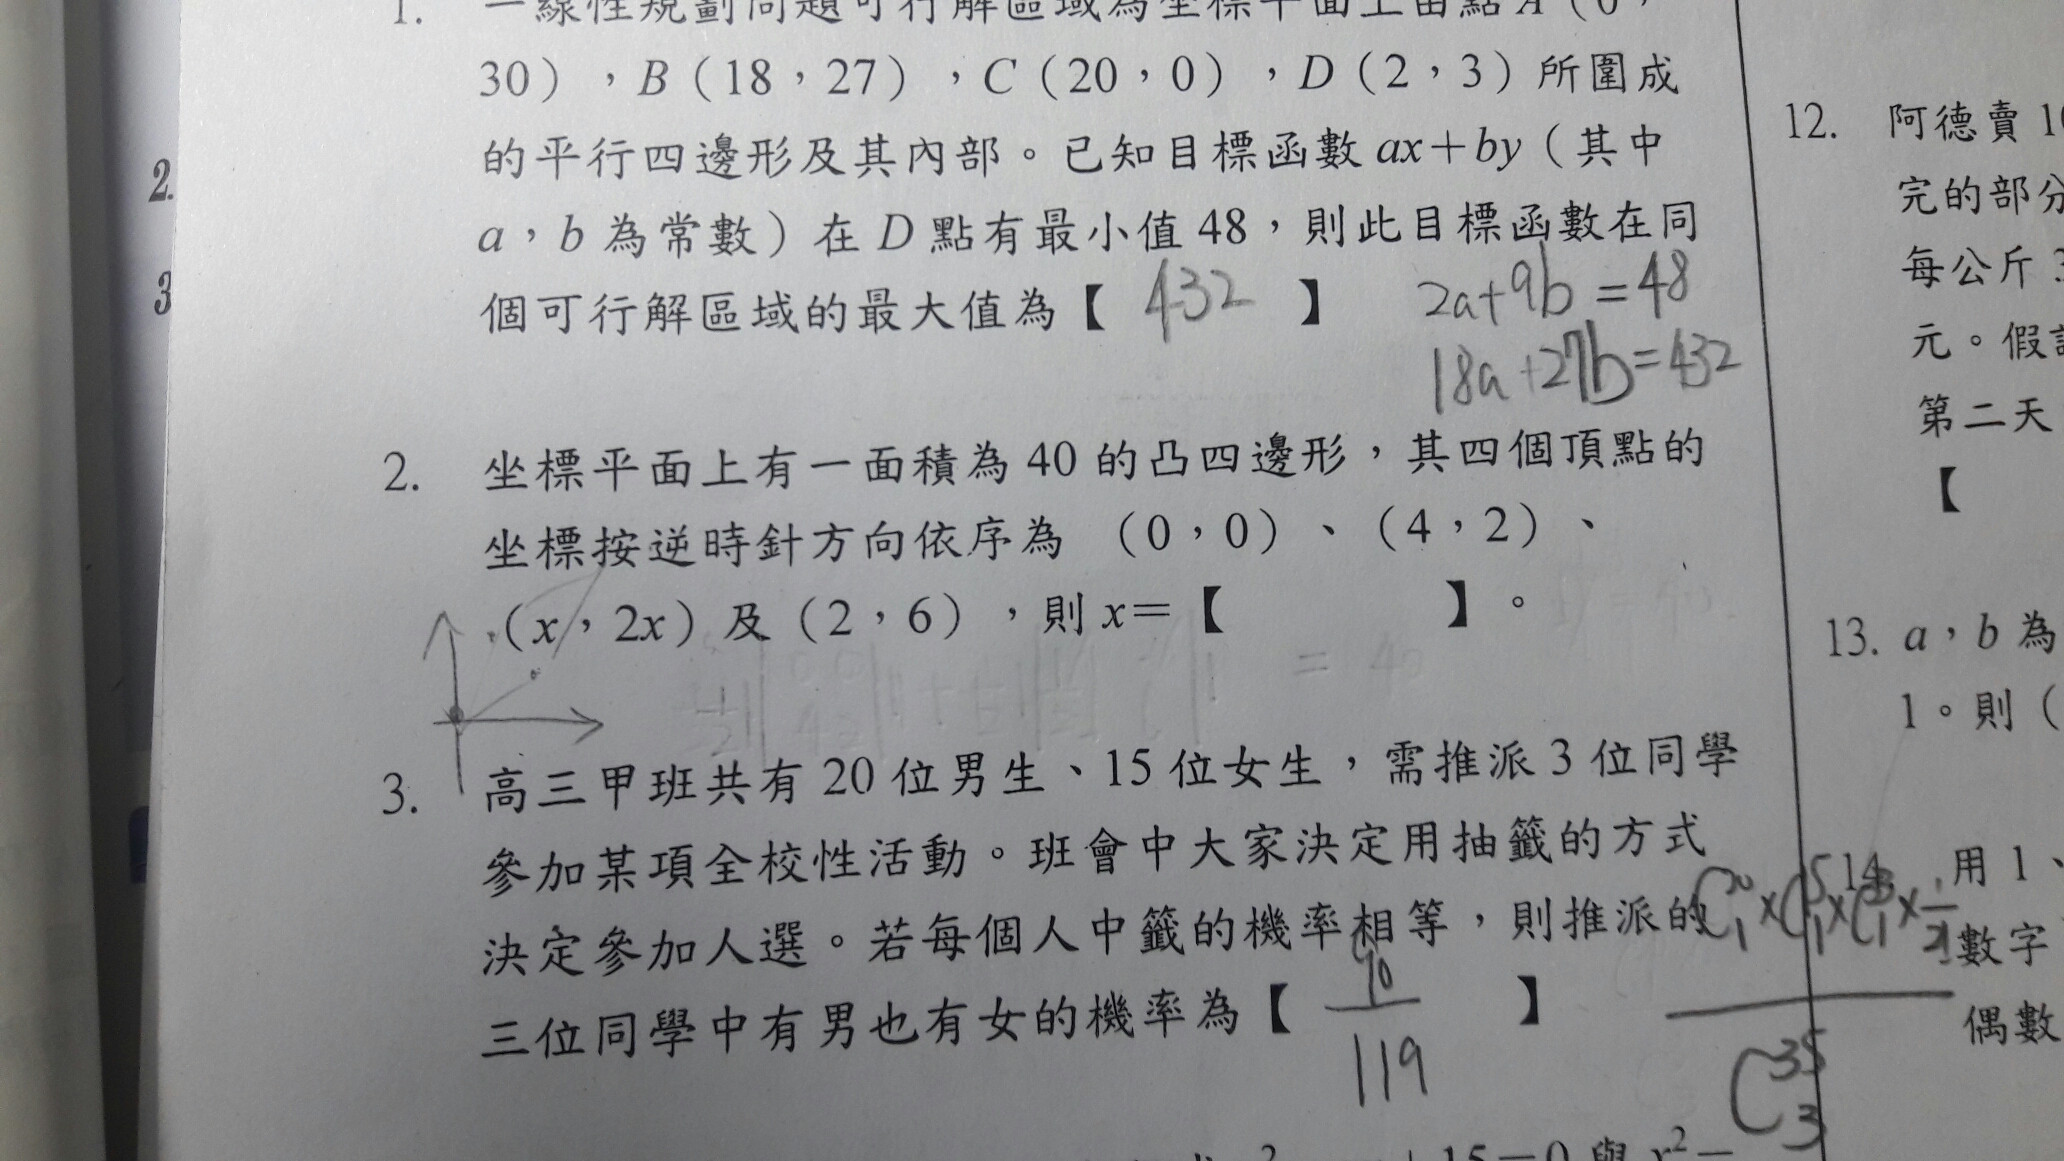 1. 一線性規劃問題可行解區域為坐標平面上由點 A（0，
30），B（18，27），C（20，0），D（2，3）所圍成
的平行四邊形及其內部。已知目標函數 ax＋by（其中
a，b 為常數）在 D 點有最小值 48，則此目標函數在同
個可行解區域的最大值為【 432 】
2a+9b=48
18a+27b=432
2. 坐標平面上有一面積為 40 的凸四邊形，其四個頂點的
坐標按逆時針方向依序為 （0，0）、（4，2）、
（x，2x）及（2，6），則 x＝【 】。
= 40
3. 高三甲班共有 20 位男生、15 位女生，需推派 3 位同學
參加某項全校性活動。班會中大家決定用抽籤的方式
決定參加人選。若每個人中籤的機率相等，則推派的
三位同學中有男也有女的機率為【 90/119 】
C 35 3
＋15＝0 與 x²－
2.
3
12. 阿德賣 10
完的部分
每公斤 3
元。假設
第二天
【
13. a，b 為
1。則（
用 1、
數字
偶數